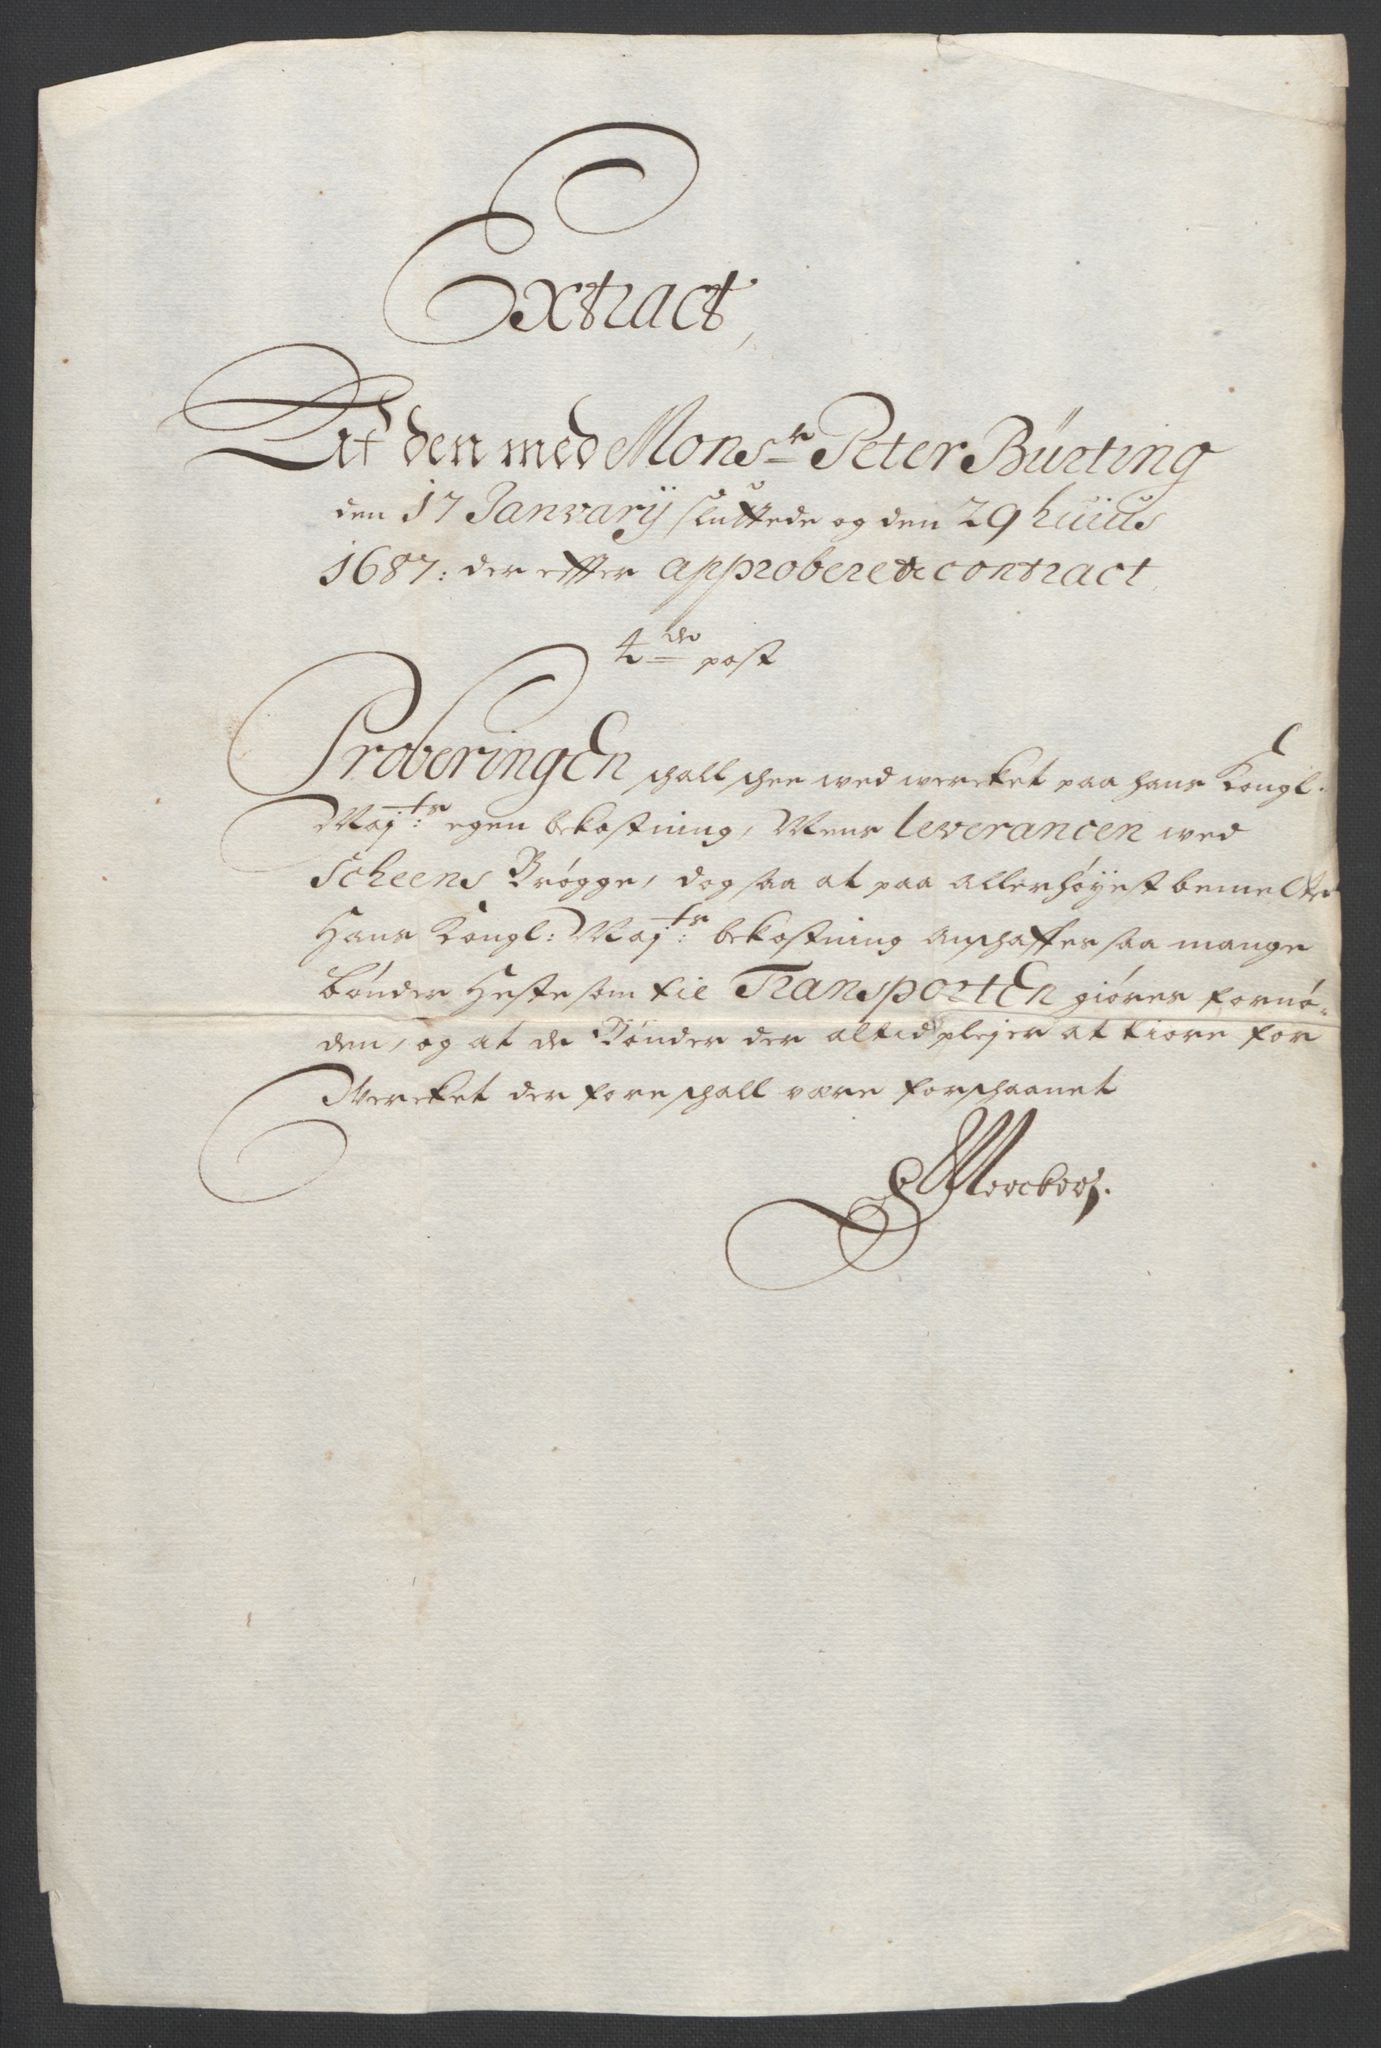 Extract,
Af den med Mons:r Peter Bürting
den 17 Januarij sluttede og den 29 huius
1687: der effter approberede contract
4de post
Proberingen schall schee wed wercket paa hans Kongl:
Maj:ts egen bekostning, Mens leverancen wed
Scheens Brøgge, dog saa at paa allerhøyest bemelte
Hans Kongl: Maj:ts bekostning anschaffes saa mange
bønder Heste som til Transporten giøres fornø-
den, og at de Bønder der altid plejer at kiøre for
Wercket der fore schall være forschaanet